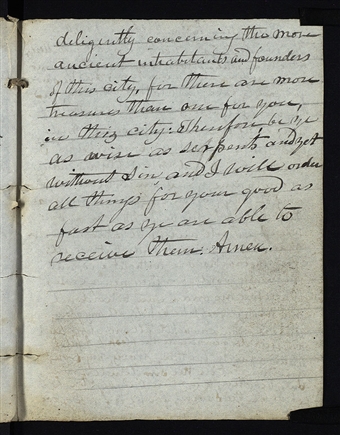 diligently concerning the more
ancient inhabitants and founders
of this city, for there are more
treasures than one for you,
in this city. Therefore be ye
as wise as serpents and yet
without sin and I will order
all things for your good as
fast as ye are able to
receive them. Amen.